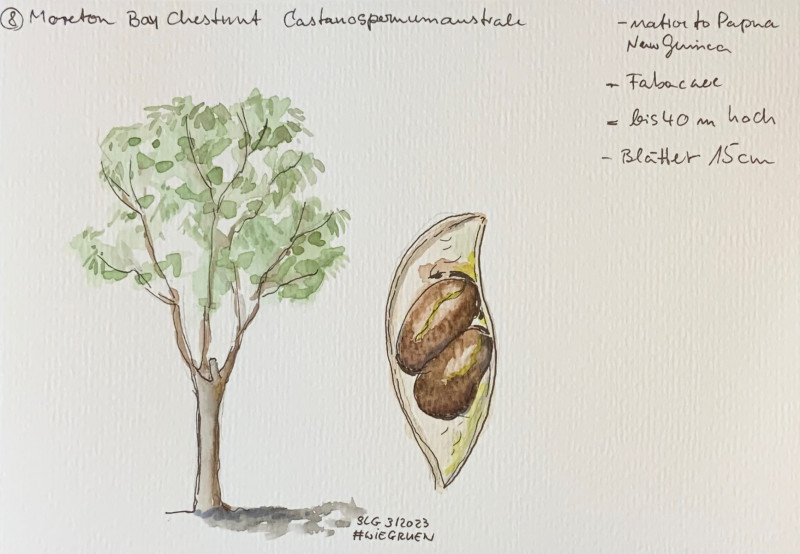 ⑧ Moreton Bay Chestnut Castanospermum australe
- native to Papua
New Guinea
- Fabaceae
- bis 40 m hoch
- Blätter 15cm
SLG 3/2023
#WIEGRUEN